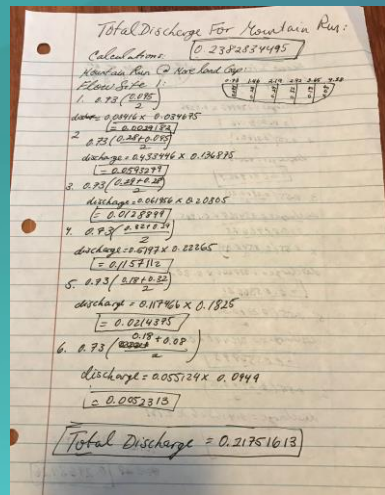 Total Discharge For Mountain Run:
Calculations: 0.2382334495
Mountain Run @ More land Gap:
Flow Site 1:
0.73 1.46 2.19 2.92 3.65 4.38
1. 0.73 (0.095/2)
0.08416 × 0.034675
= 0.0029182
2. 0.73 (0.28+0.095/2)
discharge = 0.433496 × 0.136875
= 0.0593299
3. 0.73 (0.29+0.28/2)
discharge = 0.061956 × 0.20805
= 0.0128899
4. 0.73 (0.32+0.29/2)
discharge = 0.5197 × 0.22265
= 0.1157112
5. 0.73 (0.18+0.32/2)
discharge = 0.117466 × 0.1825
= 0.0214375
6. 0.73 (0.18+0.08/2)
discharge = 0.055124 × 0.0949
= 0.0052313
Total Discharge = 0.21751613